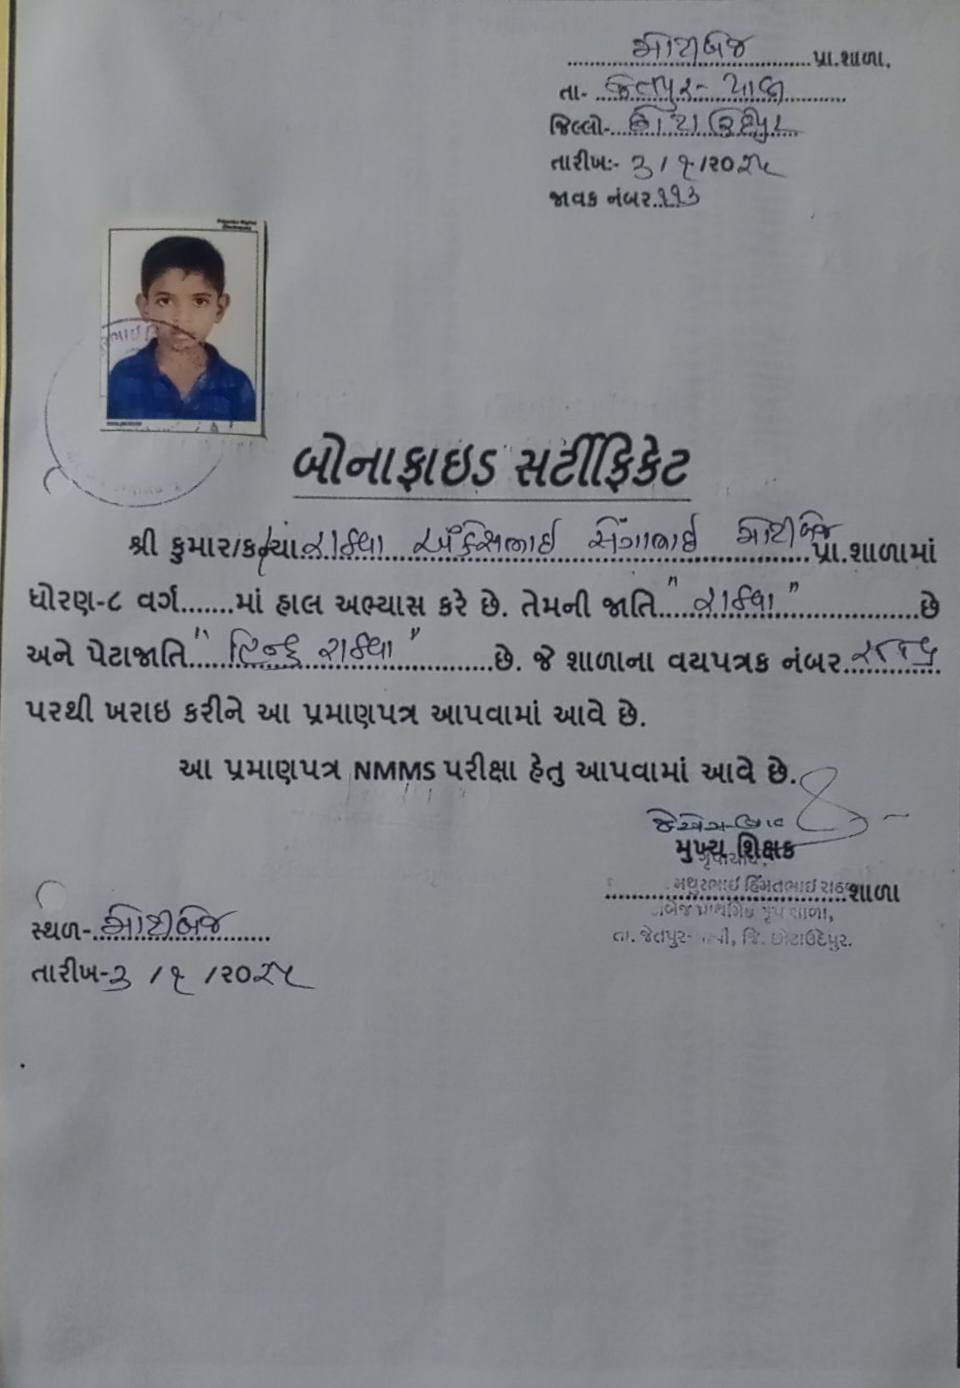 મોટીબેજ પ્રા.શાળા.
તા- જેતપુર- પાવી
જિલ્લો- છોટાઉદેપુર
તારીખ:- ૩ / ૧ /૨૦૨૫
જાવક નંબર.૧૧૩
બોનાફાઇડ સર્ટીફિકેટ
શ્રી કુમાર/કન્યા રાઠવા સિંગાભાઇ મોટીબેજ પ્રા.શાળામાં
ધોરણ-૮ વર્ગ.......માં હાલ અભ્યાસ કરે છે. તેમની જાતિ "રાઠવા" છે
અને પેટાજાતિ "હિન્દુ રાઠવા" છે. જે શાળાના વયપત્રક નંબર
પરથી ખરાઇ કરીને આ પ્રમાણપત્ર આપવામાં આવે છે.
આ પ્રમાણપત્ર NMMS પરીક્ષા હેતુ આપવામાં આવે છે.
મુખ્ય શિક્ષક
મથુરભાઇ હિંમતભાઇ શાળા
તા. જેતપુર-પાવી, જિ. છોટાઉદેપુર.
સ્થળ- મોટીબેજ
તારીખ-૩ / ૧ /૨૦૨૫